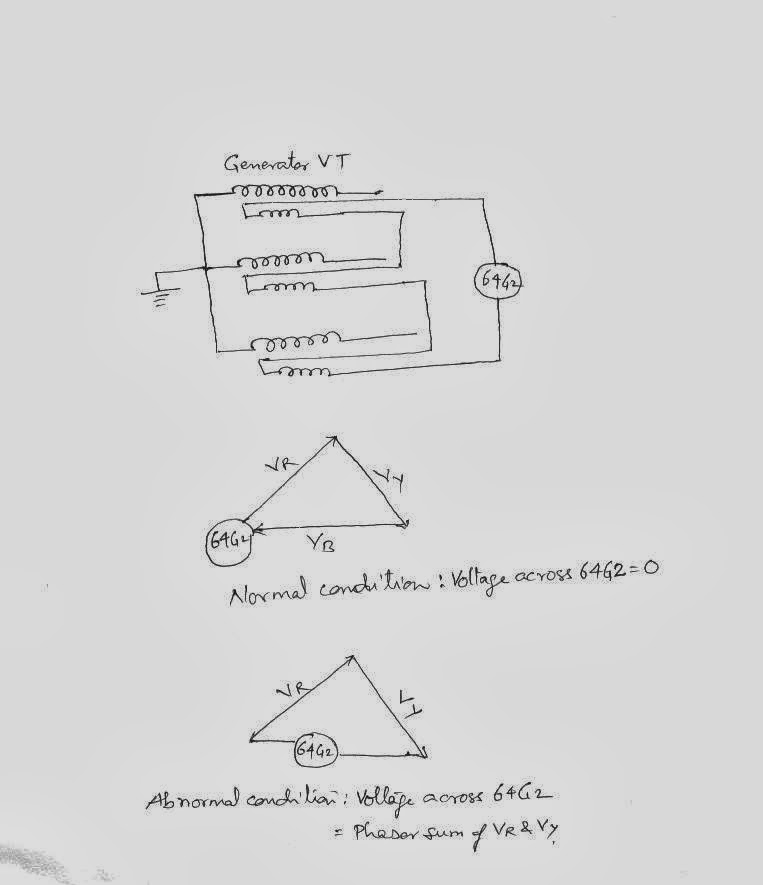 Generator VT
64G2
VR
VY
64G2
VB
Normal condition : Voltage across 64G2 = 0
VR
VY
64G2
Abnormal condition : Voltage across 64G2
= Phasor sum of VR & VY.